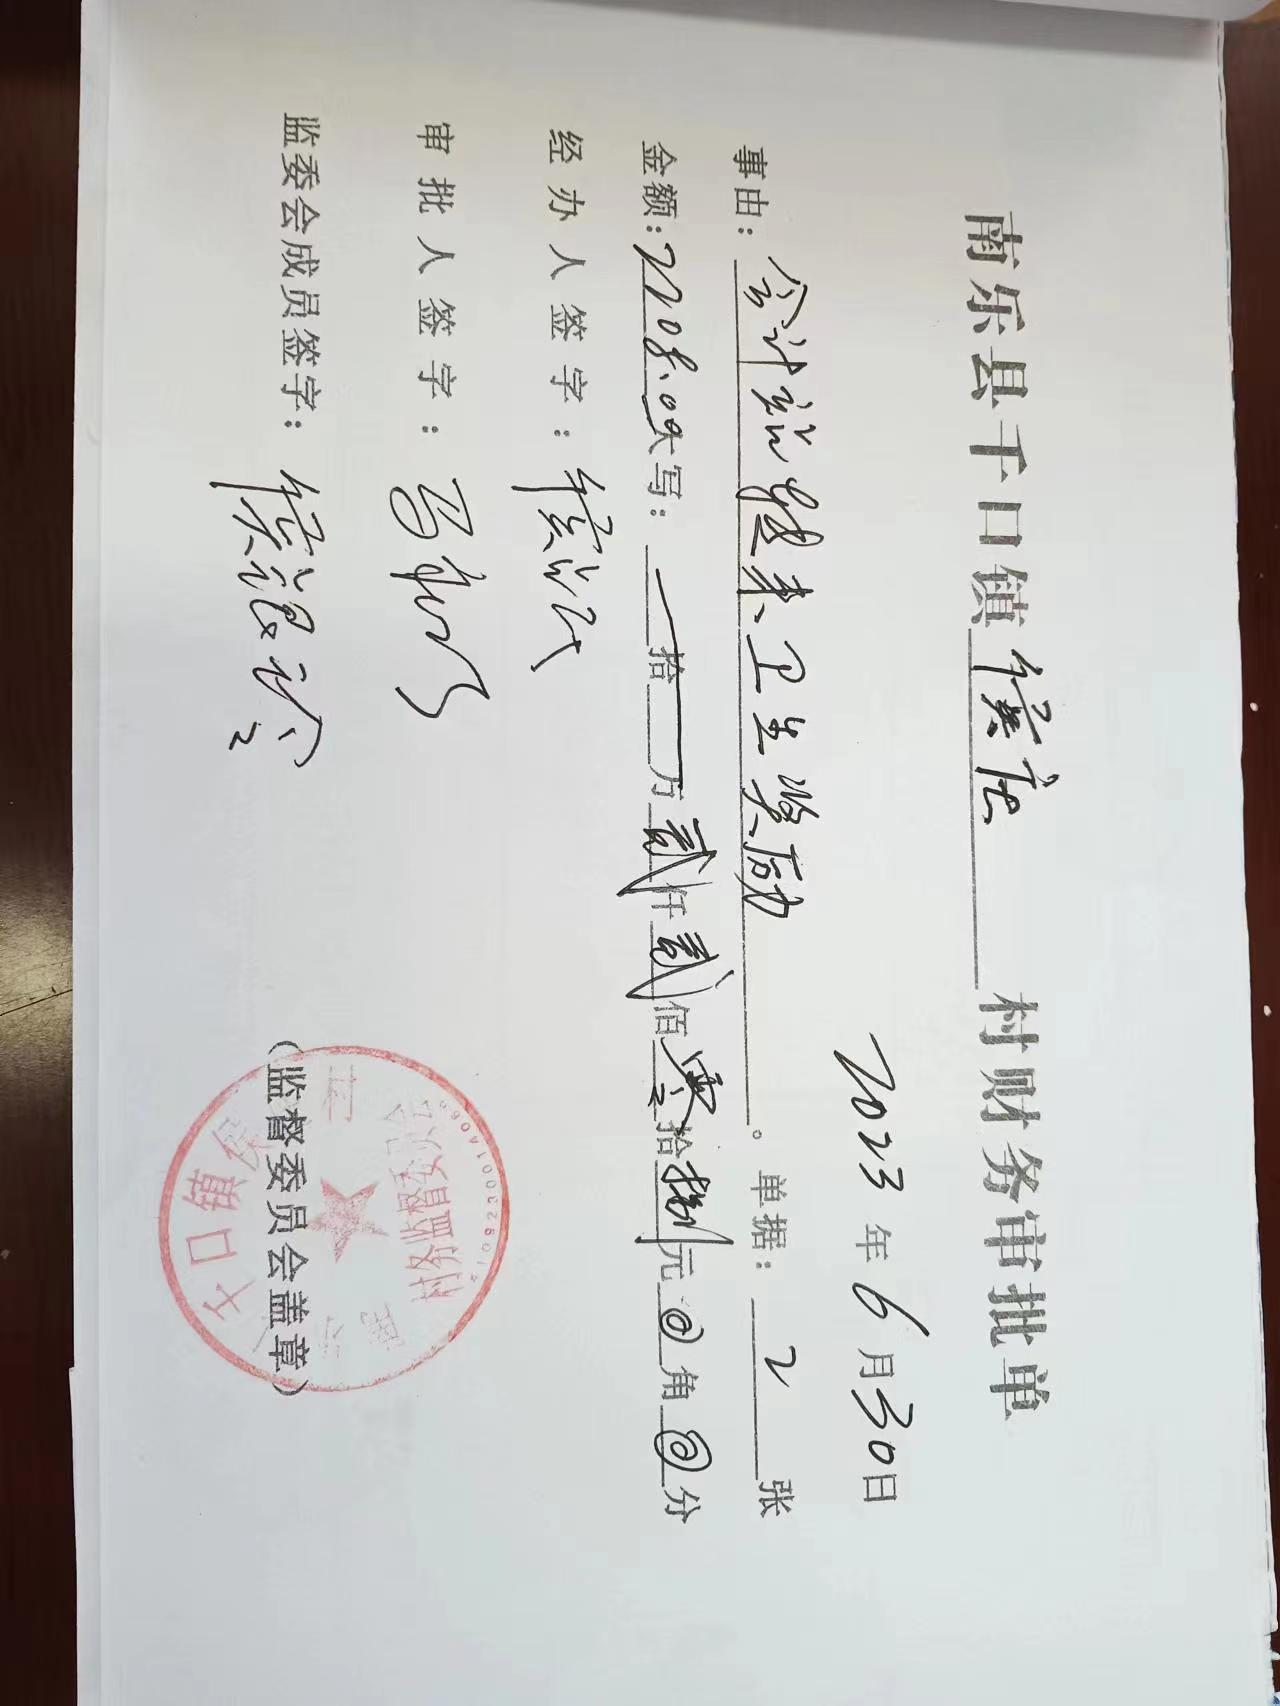 南乐县千口镇侯庄村财务审批单
2023年6月30日
事由：会计记 未卫生奖励。单据：2张
金额：2208.00大写：拾万贰仟贰佰零拾捌元⓪角⓪分
经办人签字：侯
审批人签字：
监委会成员签字：侯银
(监督委员会盖章)
口镇
村务监督委员会